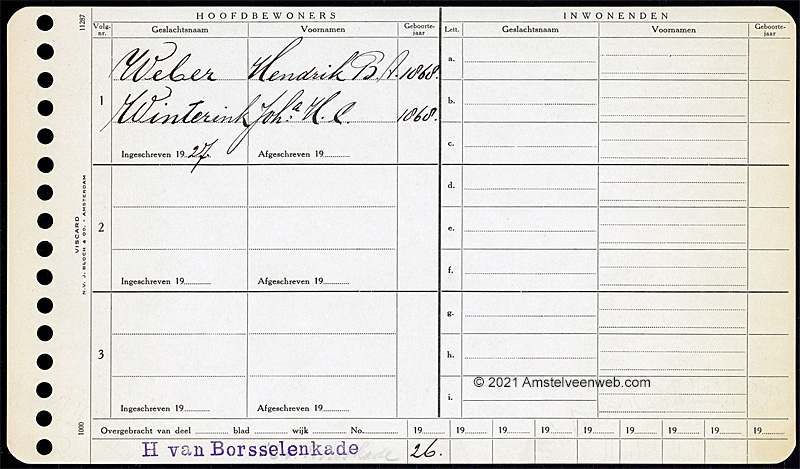 HOOFDBEWONERS
INWONENDEN
Volg-nr. Geslachtsnaam Voornamen Geboorte-jaar Lett. Geslachtsnaam Voornamen Geboorte-jaar
Weber Hendrik B. A. 1868.
1 Winterink Joh.a H. C. 1868.
Ingeschreven 1927. Afgeschreven 19
a.
b.
c.
2
Ingeschreven 19 Afgeschreven 19
d.
e.
f.
3
Ingeschreven 19 Afgeschreven 19
g.
h.
i.
© 2021 Amstelveenweb.com
Overgebracht van deel blad wijk No. 19 19 19 19 19 19 19 19 19
H van Borsselenkade 26.
11287
VISCARD
N.V. J. BLOCH & CO. - AMSTERDAM
1000